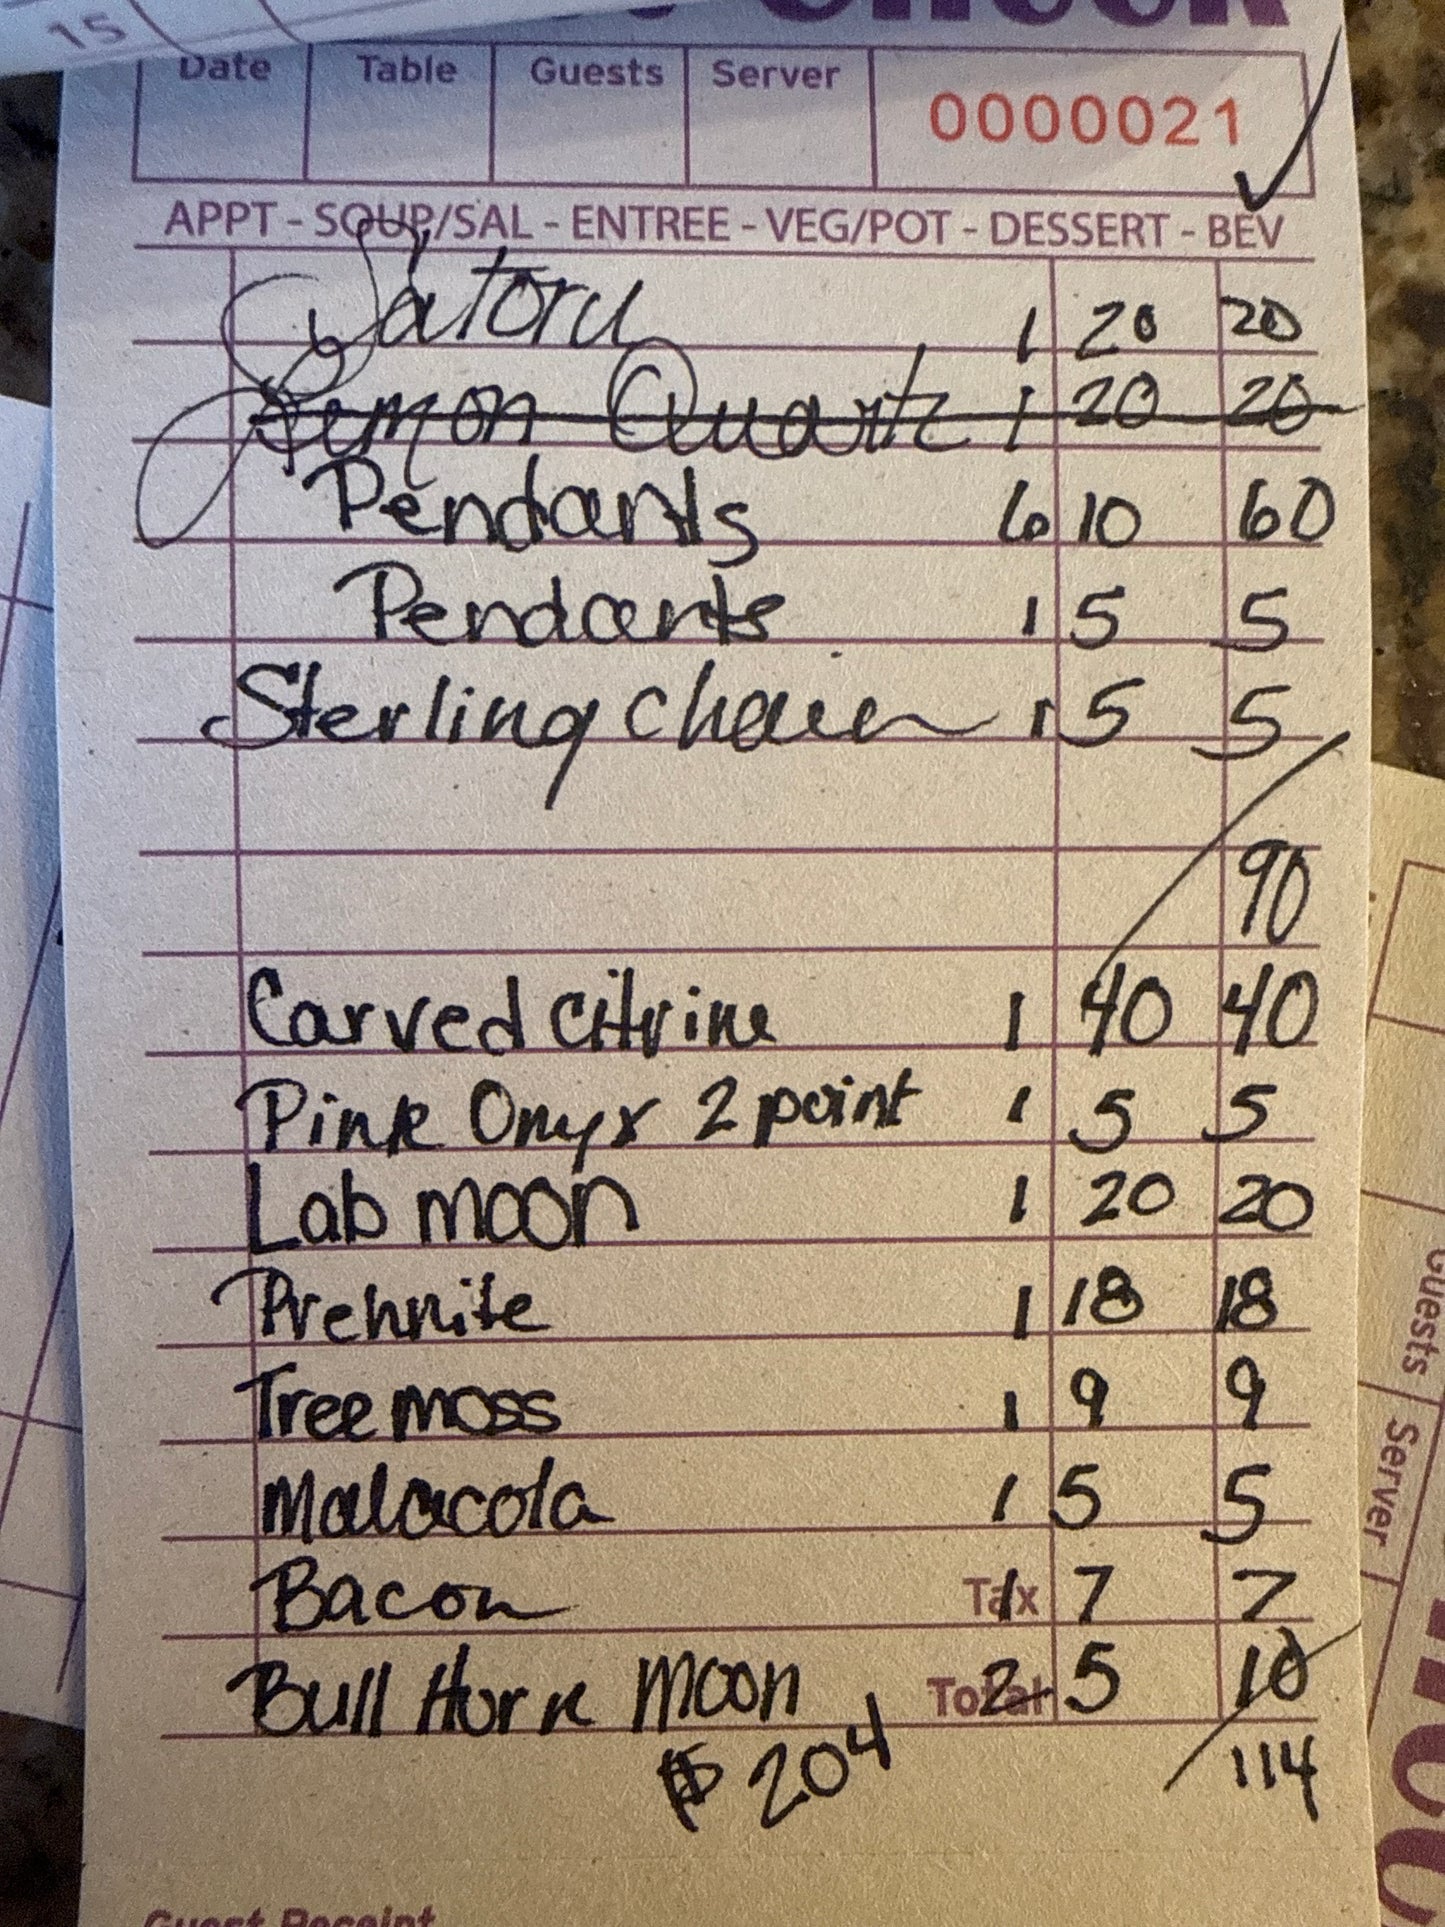 15
Check
Date Table Guests Server 0000021
APPT - SOUP/SAL - ENTREE - VEG/POT - DESSERT - BEV
Satoru 1 20 20
Lemon Quartz 1 20 20
Pendants 6 10 60
Pendants 1 5 5
Sterling chain 1 5 5
90
Carved citrine 1 40 40
Pink Onyx 2 point 1 5 5
Lab moon 1 20 20
Prehnite 1 18 18
Tree moss 1 9 9
Malacola 1 5 5
Bacon Tax 1 7 7
Bull Horn Moon Total 2 5 10
$ 204 114
Guest Receipt
Guests
Server